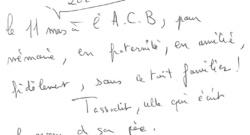 le 11 mars à l'A.C.B, pour
mémoire, en fraternité, en amitié,
fidèlement, sous ce toit familier !
Tassadit, elle qui écrit
le nom de son père.